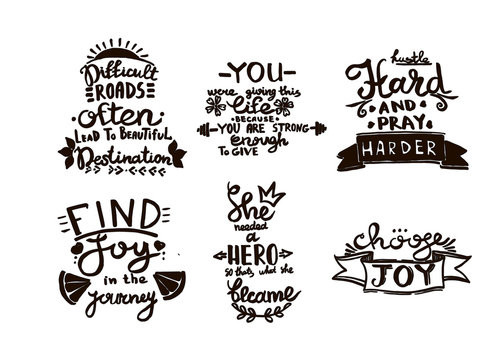 Difficult
ROADS
often
LEAD TO BEAUTIFUL
Destination
-YOU-
were giving this
life
BECAUSE
-YOU ARE STRONG
enough
TO GIVE
hustle
Hard
AND
PRAY
HARDER
FIND
Joy
in the
journey
She
needed
a
HERO
so thats what she
became
choose
JOY